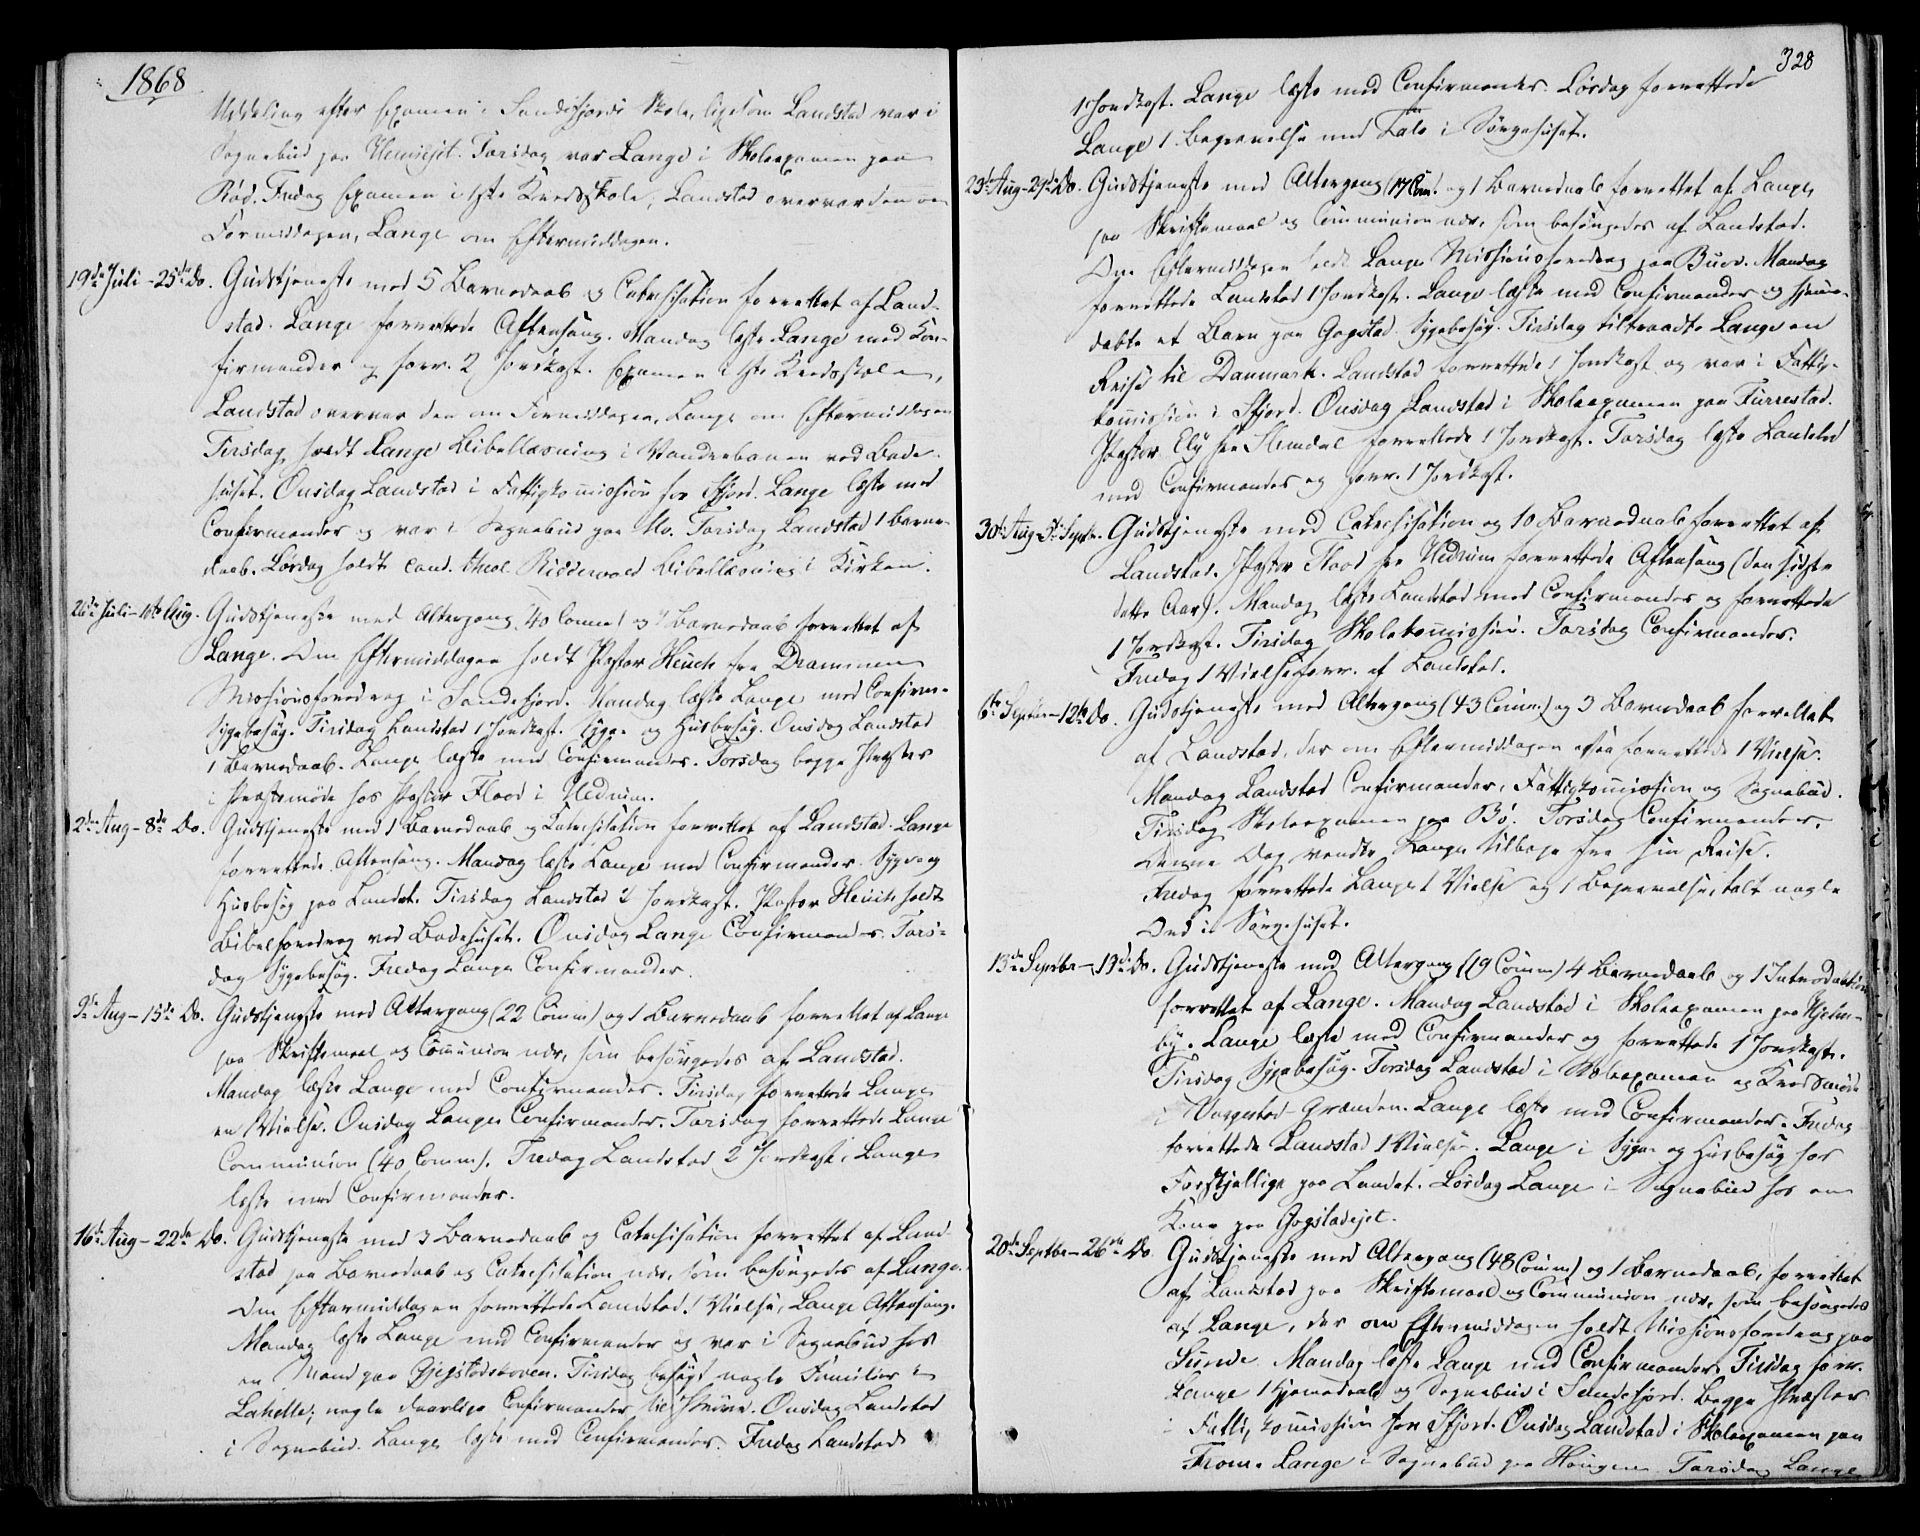 1868
Uddeling efter Examen i Sandefjords Skole, ligesom Landstad var i
Sognebud paa Hemsejet. Torsdag var Lange i Skoleexamen paa
Rød. Fredag Examen i 1ste Kredsskole, Landstad overvar den om
Formiddagen, Lange om Eftermiddagen.
19de Juli - 25de Do. Gudstjeneste med 5 Barnedaab og Catechisation forrettet af Land-
stad. Lange forrettede Aftensang. Mandag læste Lange med Con-
firmander og forr. 2 Jordkast. Examen i 1ste Kredsskole,
Landstad overvar den om Formiddagen, Lange om Eftermiddagen
Tirsdag holdt Lange Bibellæsning i Vandrebanen ved Bade-
huset. Onsdag Landstad i Fattigkomission for Sfjord. Lange læste med
Confirmander og var i Sognebud paa Mo. Torsdag Landstad 1 Barne-
daab. Lørdag holdt cand. theol. Riddervold Bibellæsning i Kirken.
26de Juli - 1ste Aug. Gudstjeneste med Altergang 40 Comm. og Barnedaab forrettet af
Lange. Om Eftermiddagen holdt Pastor Heuch fra Drammen
Missionsforedrag i Sandefjord. Mandag læste Lange med Confirm.
Sygebesøg. Tirsdag Landstad 1 Jordkast. Syge- og Husbesøg. Onsdag Landstad
1 Barnedaab. Lange læste med Confirmander. Torsdag begge Prester
i Præstemøde hos Pastor Flood i Hedrum.
2den Aug - 8de Do. Gudstjeneste med 1 Barnedaab og Catechisation forrettet af Landstad. Lange
forrettede Aftensang. Mandag læste Lange med Confirmander. Syge og
Husbesøg paa Landet. Tirsdag Landstad 2 Jordkast. Pastor Heuch holdt
Bibelforedrag ved Badehuset. Onsdag Lange Confirmander. Tors-
dag Sygebesøg. Fredag Lange Confirmander.
9de Aug - 15de Do. Gudstjeneste med Altergang (22 Comm) og 1 Barnedaab forrettet af Lange
paa Skriftemaal og Communion nær, som besørgedes af Landstad.
Mandag læste Lange med Confirmander. Tirsdag forrettede Lange
en Vielse. Onsdag Lange Confirmander. Torsdag forrettede Lange
Communion (40 Comm). Fredag Landstad 2 Jordkast, Lange
læste med Confirmander.
16de Aug - 22de Do. Gudstjeneste med 3 Barnedaab og Catechisation forrettet af Land-
stad paa Barnedaab og Catechisation nær, som besørgedes af Lange.
Om Eftermiddagen forrettede Landstad 1 Vielse, Lange Aftensang.
Mandag læste Lange med Confirmander og var i Sognebud hos
en Mand paa Gjegstadskoven. Tirsdag besøgt nogle Familier i
Lahelle; nogle daarlige Confirmander til Prøve. Onsdag Landstad
i Sognebud. Lange læste med Confirmander. Fredag Landstad
328
1 Jordkast. Lange læste med Confirmander. Lørdag forrettede
Lange 1 Begravelse med Tale i Sørgehuset.
23de Aug - 29de Do. Gudstjeneste med Altergang (17 Com. og 1 Barnedaab forrettet af Lange,
paa Skriftemaal og Communion nær, som besørgedes af Landstad.
Om Eftermiddagen holdt Lange Missionsforedrag paa Buer. Mandag
forrettede Landstad 1 Jordkast. Lange læste med Confirmander og hjemme-
døbte et Barn paa Gogstad. Sygebesøg. Tirsdag tiltraadte Lange en
Reise til Danmark. Landstad forrettede 1 Jordkast og var i Fattig-
komission i Sfjord. Onsdag Landstad i Skoleexamen paa Furrestad.
Pastor fra Slemdal forrettede 1 Jordkast. Torsdag læste Landstad
med Confirmander og forr. 1 Jordkast.
30te Aug - 5te Septbr. Gudstjeneste med Catechisation og 10 Barnedaab forrettet af
Landstad. Pastor Flood fra Hedrum forrettede Aftensang (den sidste
dette Aar). Mandag læste Landstad med Confirmander og forrettede
1 Jordkast. Tirsdag Skolekomission. Torsdag Confirmander.
Fredag 1 Vielse forr. af Landstad.
6te Septbr - 12te Do. Gudstjeneste med Altergang (43 Comm) og 3 Barnedaab forrettet
af Landstad, der om Eftermiddagen ogsaa forrettede 1 Vielse.
Mandag Landstad Confirmander, Fattigkomission og Sognebud.
Tirsdag Skoleexamen paa Bø. Torsdag Confirmander.
Denne Dag vendte Lange tilbage fra sin Reise.
Fredag forrettede Lange 1 Vielse og 1 Begravelse, talt nogle
Ord i Sørgehuset.
13de Septbr - 19de Do. Gudstjeneste med Altergang (19 Comm) 4 Barnedaab og 1 Introduction
forrettet af Lange. Mandag Landstad i Skoleexamen paa Hjelm-
by. Lange læste med Confirmander og forrettede 1 Jordkast.
Tirsdag Sygebesøg. Torsdag Landstad i Skoleexamen og Kredsmøde
i Vaggestad-Grænden. Lange læste med Confirmander. Fredag
forrettede Landstad 1 Vielse. Lange i Syge- og Husbesøg hos
Forskjellige paa Landet. Lørdag Lange i Sognebud hos en
Kone paa Gogstadejet.
20de Septbr - 26de Do Gudstjeneste med Altergang (48 Comm) og 1 Barnedaab, forrettet
af Landstad paa Skriftemaal og Communion nær, som besørgedes
af Lange, der om Eftermiddagen holdt Missionsforedrag paa
Sunde. Mandag læste Lange med Confirmander. Tirsdag forr.
Lange 1 Hjemmedaab og Sognebud i Sandefjord. Begge Præster
i Fattigkomission for Sfjord. Onsdag Landstad i Skoleexamen paa
From. Lange i Sognebud paa Haugen. Torsdag Lange